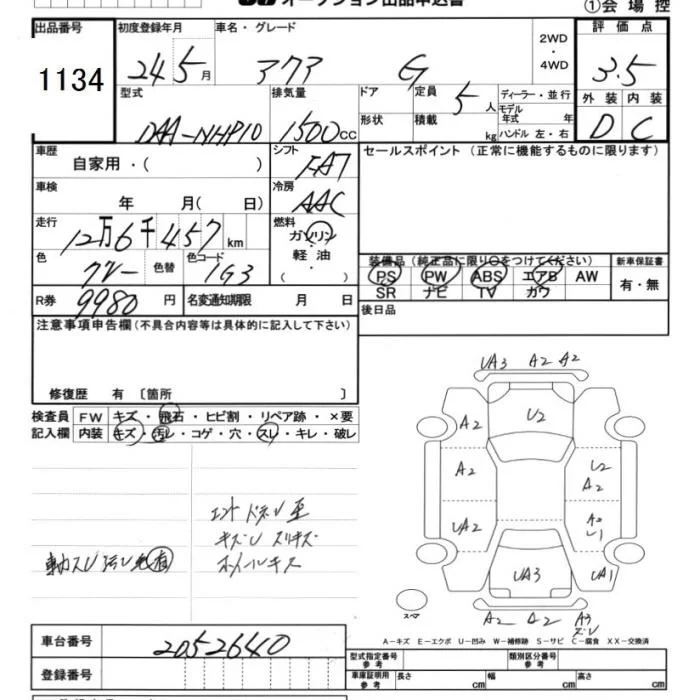 オークション出品申込書
①会場控
出品番号 初度登録年月 車名・グレード 2WD・4WD 評価点
1134 24 5月 アクア G 3.5
型式 排気量 ドア 定員 5人 ディーラー・並行 外装 内装
DAA-NHP10 1500cc 形状 積載 kg モデル年式 年 ハンドル 左・右 D C
車歴 自家用・( ) シフト FAT セールスポイント (正常に機能するものに限ります)
車検 年 月( 日) 冷房 AAC
走行 12万6千457km 燃料 ガソリン・軽油・( )
色 グレー 色替 色コード 1G3 装備品 (純正品に限り○をつけてください) 新車保証書
PS PW ABS エアB AW 有・無
SR ナビ TV カワ
R券 9980円 名変通知期限 月 日 後日品
注意事項申告欄 (不具合内容等は具体的に記入して下さい)
修復歴 有 〔箇所 〕
検査員 FW キズ・飛石・ヒビ割・リペア跡・×要
記入欄 内装 キズ・汚レ・コゲ・穴・スレ・キレ・破レ
UA3 A2 A2
A2 U2
A2 U2 A2
UA2 A2 U1
UA3 UA1
スペア A2 A2 A3
キズU スリキズ
ホイールキズ
A-キズ E-エクボ U-凹み W-補修跡 S-サビ C-腐食 XX-交換済
車台番号 2052640
型式指定番号 参考 類別区分番号 参考
登録番号 車庫証明用 参考 長さ cm 幅 cm 高さ cm